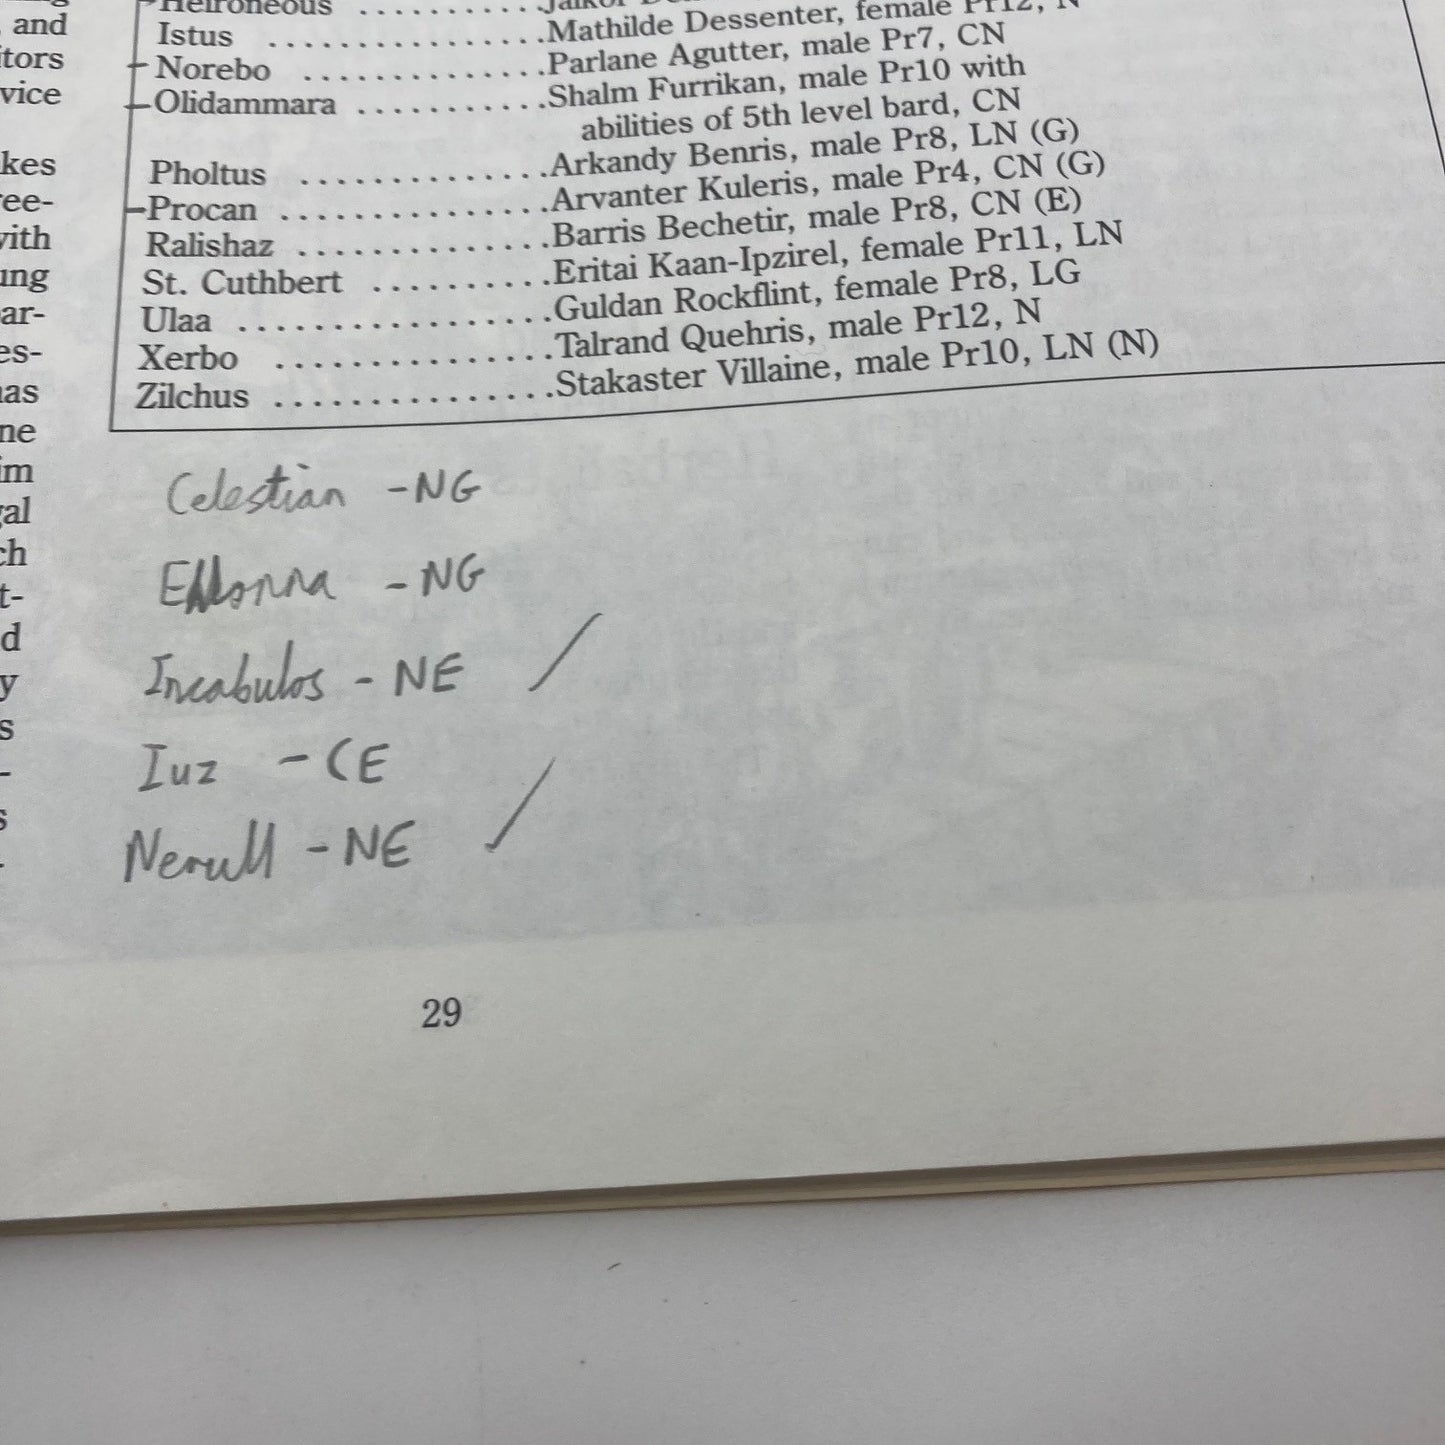 and
tors
vice
kes
ee-
vith
ung
ar-
es-
as
ne
im
gal
ch
t-
d
y
s
-
s
Heironeous
Istus ................Mathilde Dessenter, female Pr12, N
Norebo ..............Parlane Agutter, male Pr7, CN
Olidammara ...........Shalm Furrikan, male Pr10 with
abilities of 5th level bard, CN
Pholtus ..............Arkandy Benris, male Pr8, LN (G)
Procan ...............Arvanter Kuleris, male Pr4, CN (G)
Ralishaz ..............Barris Bechetir, male Pr8, CN (E)
St. Cuthbert ..........Eritai Kaan-Ipzirel, female Pr11, LN
Ulaa .................Guldan Rockflint, female Pr8, LG
Xerbo ...............Talrand Quehris, male Pr12, N
Zilchus ...............Stakaster Villaine, male Pr10, LN (N)
Celestian - NG
Ehlonna - NG
Incabulos - NE /
Iuz - CE
Nerull - NE /
29